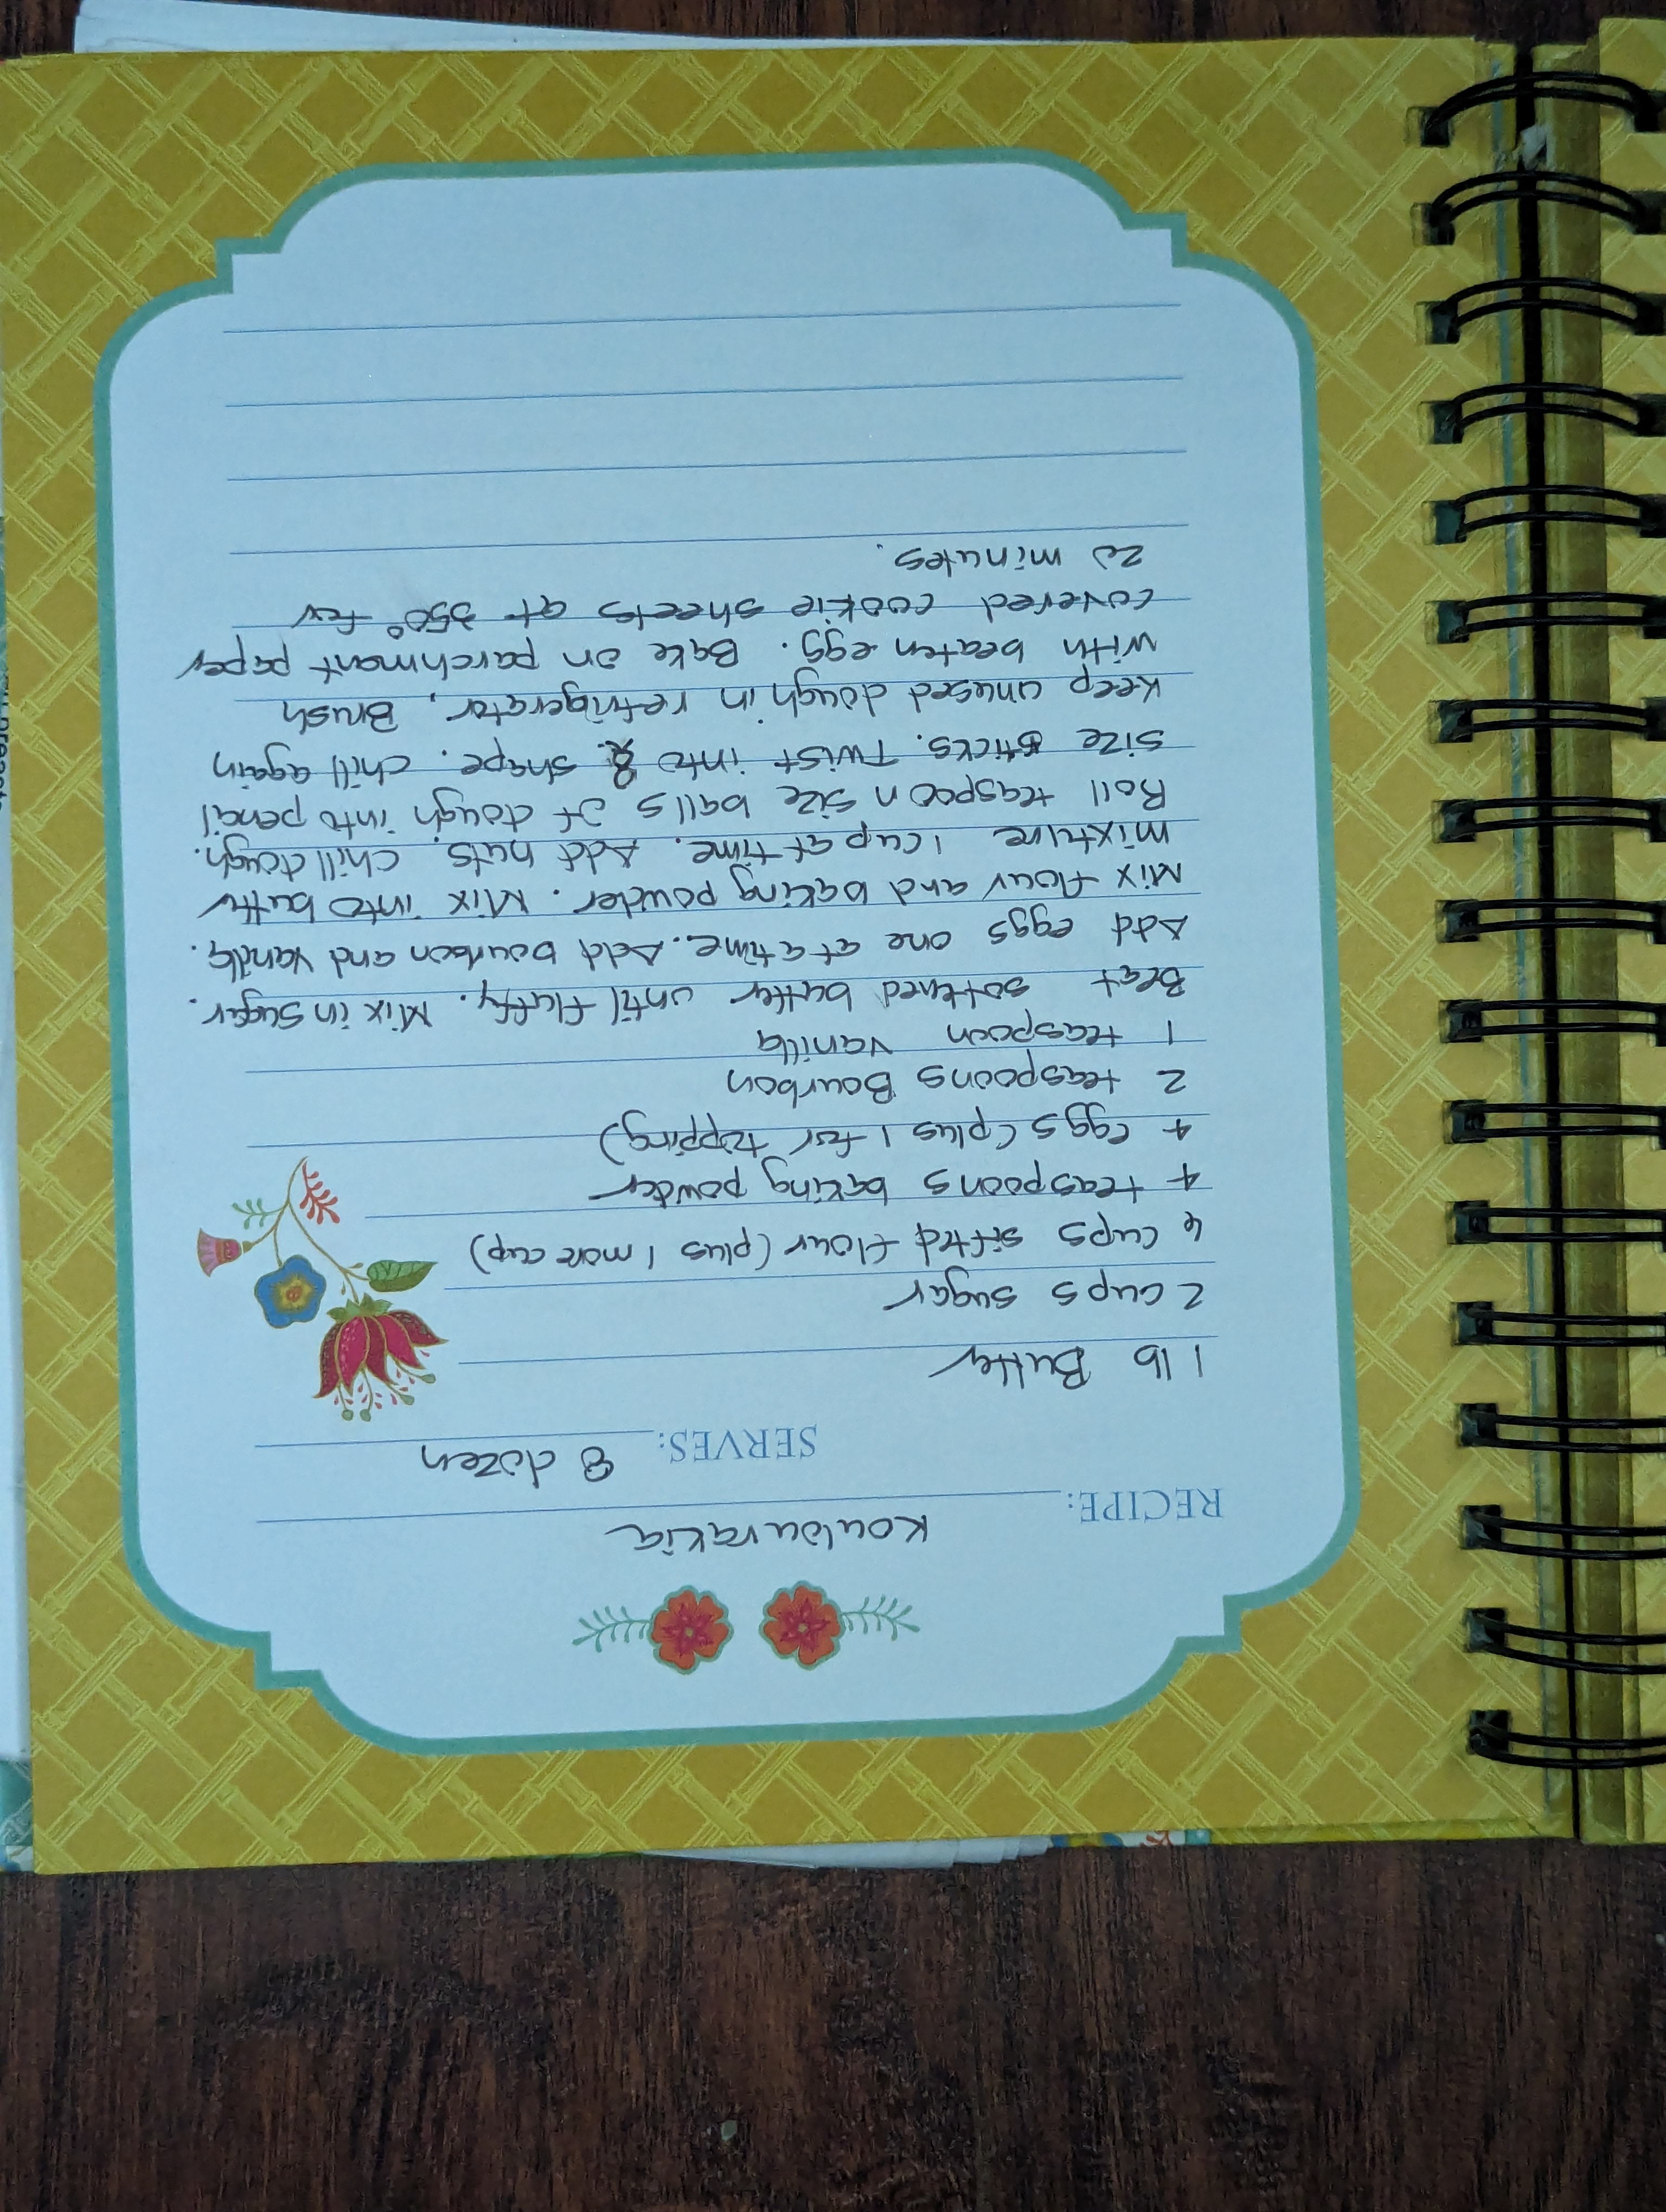 RECIPE: Koulourakia
SERVES: 8 dozen
1 lb Butter
2 cups sugar
6 cups sifted flour (plus 1 more cup)
4 teaspoons baking powder
4 eggs (plus 1 for topping)
2 teaspoons Bourbon
1 teaspoon vanilla
Beat softened butter until fluffy. Mix in sugar.
Add eggs one at a time. Add bourbon and vanilla.
Mix flour and baking powder. Mix into butter
mixture 1 cup at time. Add nuts. Chill dough.
Roll teaspoon size balls of dough into pencil
size sticks. Twist into 8 shape. Chill again
Keep unused dough in refrigerator, Brush
with beaten egg. Bake on parchmant paper
covered cookie sheets at 350° for
20 minutes.